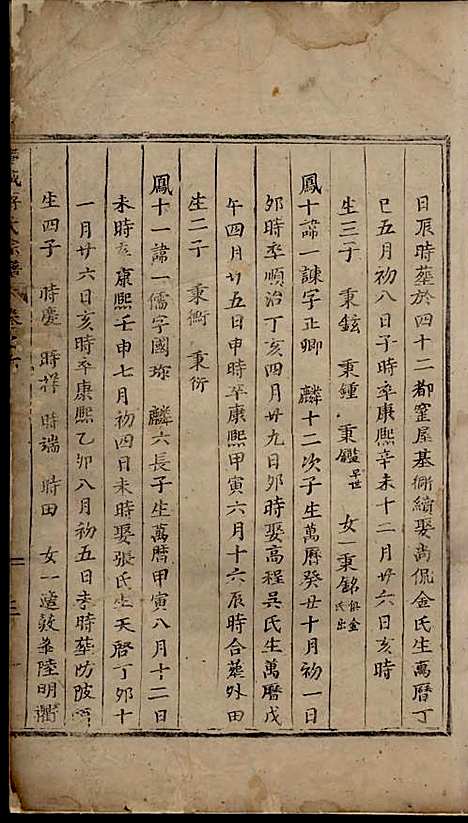 日辰時葬於四十二都窑屋基衕續娶尚侃金氏生萬曆丁
巳五月初八日子時卒康熙辛未十二月廿六日亥時
生三子 秉鉉 秉鍾 秉鑑早世 女一秉銘俱金氏出
鳳十諱一諫字正卿 麟十二次子生萬曆癸丑十月初一日
卯時卒順治丁亥四月廿九日卯時娶高程吳氏生萬曆戊
午四月廿五日申時卒康熙甲寅六月十六辰時合葬外田
生二子 秉衡 秉衍
鳳十一諱一儒字國珍 麟六長子生萬曆甲寅八月十二日
未時卒康熙壬申七月初四日未時娶張氏生天啓丁卯十
一月廿六日亥時卒康熙乙卯八月初五日未時葬防陂
生四子 時慶 時祥 時端 時田 女一適敦本陸明